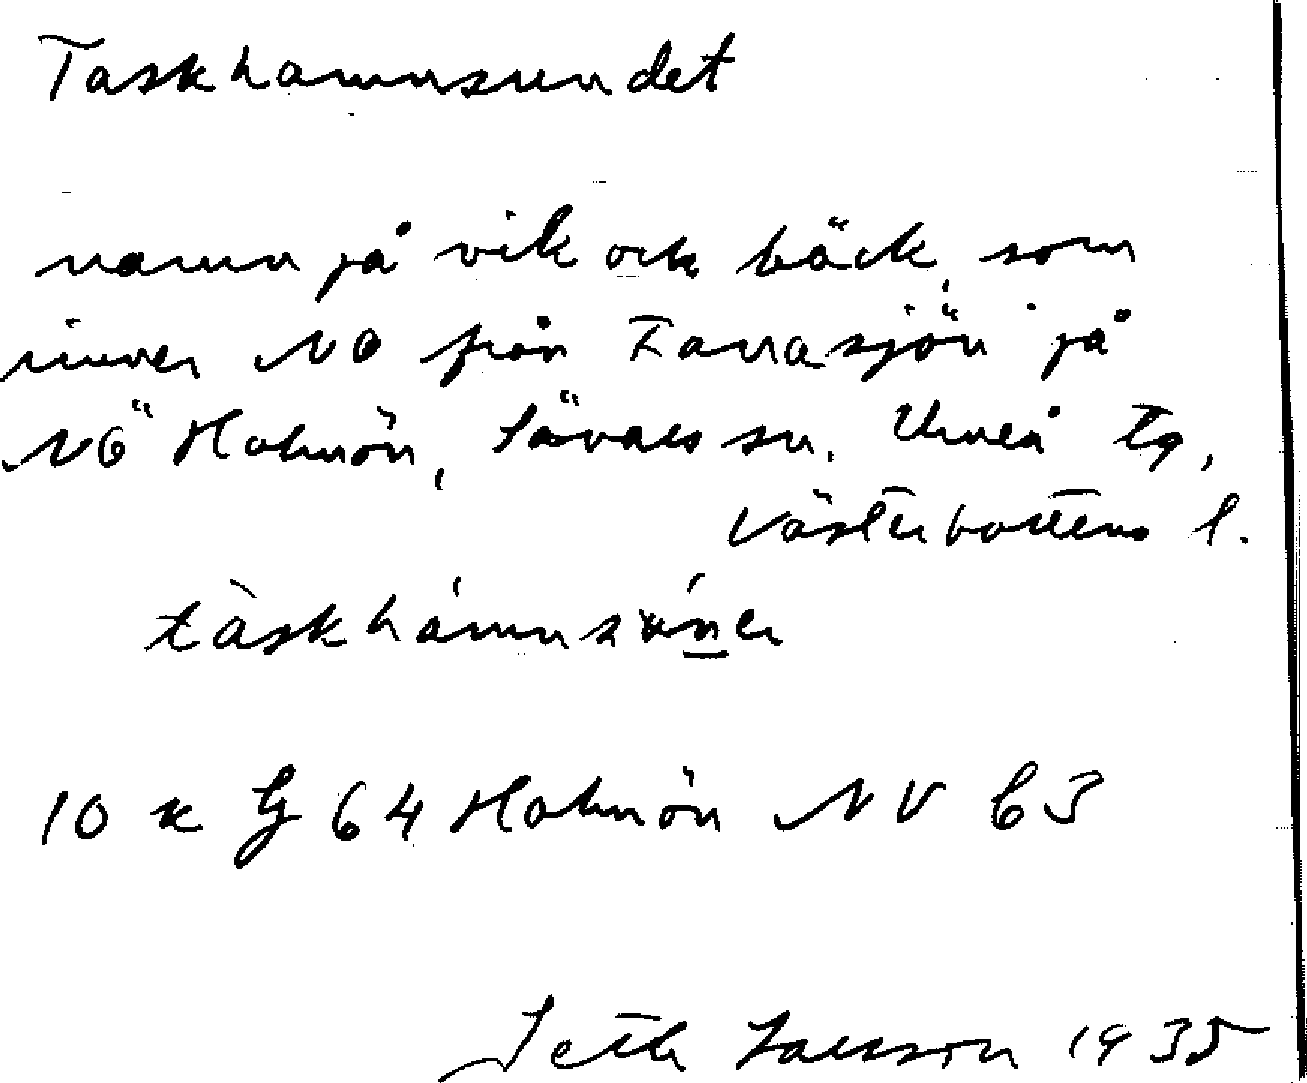 Taskhamnsundet
namn på vik ock bäck, som
rinner NO från Tarrasjön på
NÖ Holmön, Sävars sn. Umeå tg,
Västerbottens l.
10 K G 64 Holmön NV 63
Seth Larsson 1935